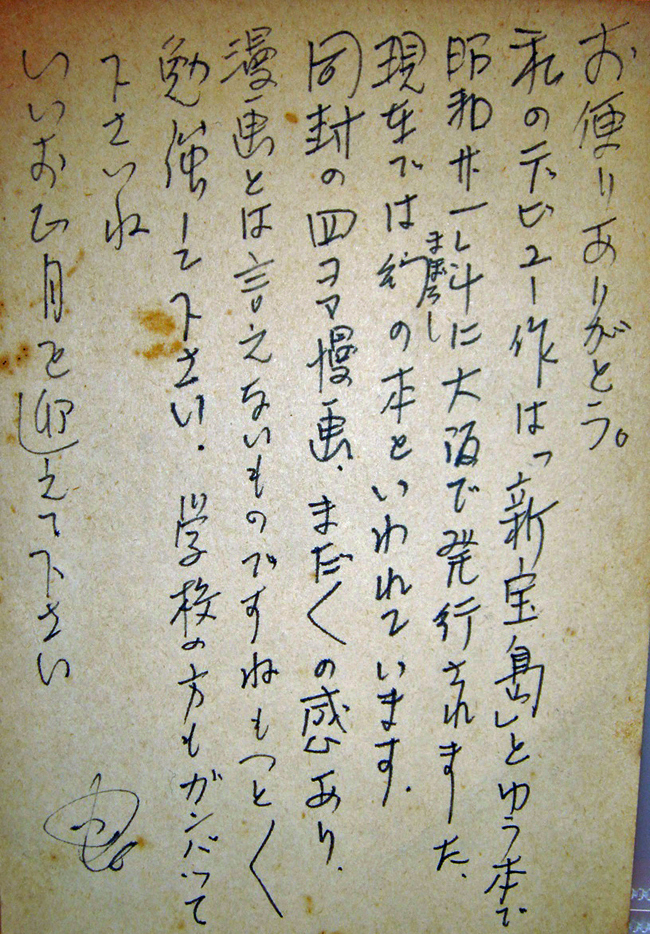 お便りありがとう。
私のデビュー作は「新宝島」とゆう本で
昭和廿一年に大阪で発行されました、
現在では幻の本といわれています.
まぼろし
同封の四コマ慢画、まだ〱の感あり、
漫画とは言えないものですねもっと〱
勉強して下さい. 学校の方もガンバって
下さいね
いいお正月を迎えて下さい